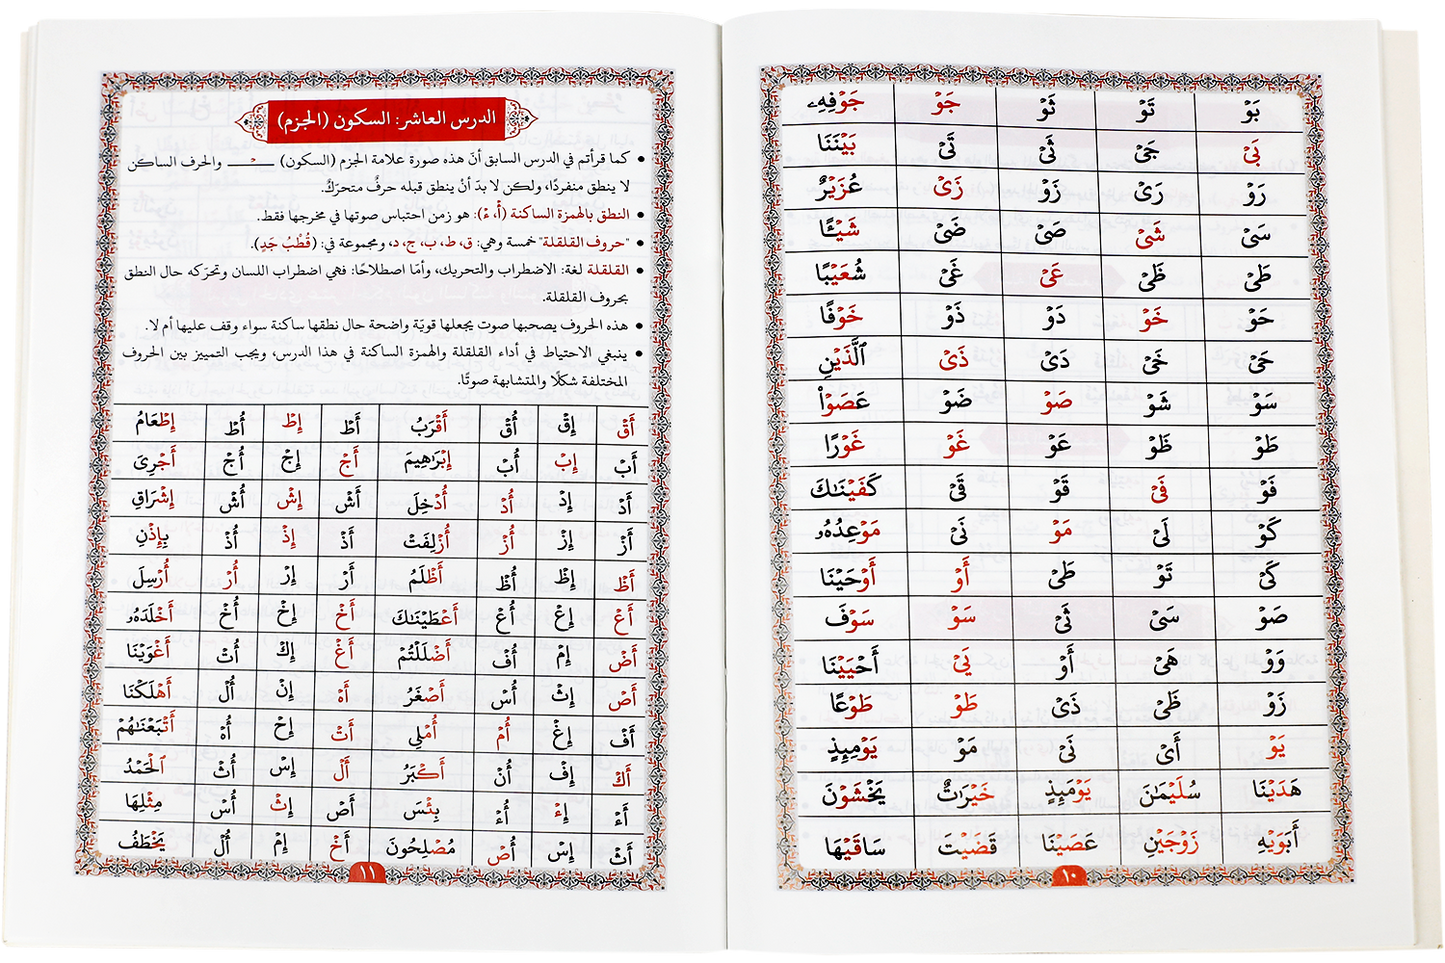 بَوْ تَوْ ثَوْ جَوْ جَوْفِهِۦ
بَىْ جَىْ ثَىْ تَىْ بَيْنَنَا
رَوْ رَىْ زَوْ زَىْ عُزَيْرٌ
سَىْ شَىْ صَىْ ضَىْ شَيْـًٔا
طَىْ ظَىْ عَىْ غَىْ شُعَيْبًا
حَوْ خَوْ دَوْ ذَوْ خَوْفًا
حَىْ خَىْ دَىْ ذَىْ ٱلَّذَيْنِ
سَوْ شَوْ صَوْ ضَوْ عَصَوْا۟
طَوْ ظَوْ عَوْ غَوْ غَوْرًا
فَوْ فَىْ قَوْ قَىْ كَفَيْنَـٰكَ
كَوْ لَىْ مَوْ نَىْ مَوْعِدُهُۥ
كَىْ تَوْ طَىْ أَوْ أَوْحَيْنَا
صَوْ سَىْ ثَىْ سَوْ سَوْفَ
وَوْ هَىْ أَوْ يَىْ أَحْيَيْنَا
زَوْ ظَىْ ذَىْ طَوْ طَوْعًا
يَوْ أَىْ نَىْ مَوْ يَوْمِئِذٍ
هَدَيْنَا سُلَيْمَـٰنَ يَوْمَئِذٍ خَيْرَٰتٌ يَخْشَوْنَ
أَبَوَيْهِ زَوْجَيْنِ عَصَيْنَا قَضَيْتَ سَاقَيْهَا
١٠
الدرس العاشر: السكون (الجزم)
• كما قرأتم في الدرس السابق أنّ هذه صورة علامة الجزم (السكون) ـــْـــ والحرف الساكن
لا ينطق منفردًا، ولكن لا بدّ أنْ ينطق قبله حرفٌ متحرّكٌ.
• النطق بالهمزة الساكنة (أْ، ءْ): هو زمن احتباس صوتها في مخرجها فقط.
• "حروف القلقلة" خمسة وهي: ق، ط، ب، ج، د، ومجموعة في: (قُطْبُ جَدٍ).
• القلقلة لغة: الاضطراب والتحريك، وأمّا اصطلاحًا: فهي اضطراب اللسان وتحرّكه حال النطق
بحروف القلقلة.
• هذه الحروف يصحبها صوت يجعلها قويّة واضحة حال نطقها ساكنة سواء وقف عليها أم لا.
• ينبغي الاحتياط في أداء القلقلة والهمزة الساكنة في هذا الدرس، ويجب التمييز بين الحروف
المختلفة شكلًا والمتشابهة صوتًا.
أَقْ إِقْ أُقْ أَقْرَبُ أَطْ إِطْ أُطْ إِطْعَامُ
أَبْ إِبْ أُبْ إِبْرَٰهِيمَ أَجْ إِجْ أُجْ أَجْرِىَ
أَدْ إِدْ أُدْ أُدْخِلَ أَشْ إِشْ أُشْ إِشْرَاقِ
أَزْ إِزْ أُزْ أُزْلِفَتْ أَذْ إِذْ أُذْ بِإِذْنِ
أَظْ إِظْ أُظْ أَظْلَمُ أَرْ إِرْ أُرْ أُرْسِلَ
أَعْ إِعْ أُعْ أَعْطَيْنَـٰكَ أَخْ إِخْ أُخْ أَخْلَدَهُۥ
أَضْ إِمْ أُفْ أَضْلَلْتُمْ أَغْ إِكْ أُتْ أَغْوَيْنَا
أَصْ إِثْ أُسْ أَصْغَرُ أَهْ إِنْ أُلْ أَهْلَكْنَا
أَفْ إِغْ أُمْ أُمْلِى أَتْ إِحْ أُدْ أَتْبَعْنَـٰهُمْ
أَكْ إِفْ أُنْ أَكْبَرُ أَلْ إِسْ أُثْ ٱلْحَمْدُ
أَءْ إِءْ أُءْ بِئْسَ أَصْ إِثْ أُسْ مِثْلِهَا
أَثْ إِسْ أُصْ مُصْلِحُونَ أَخْ إِمْ أُلْ يَخْطَفُ
١١